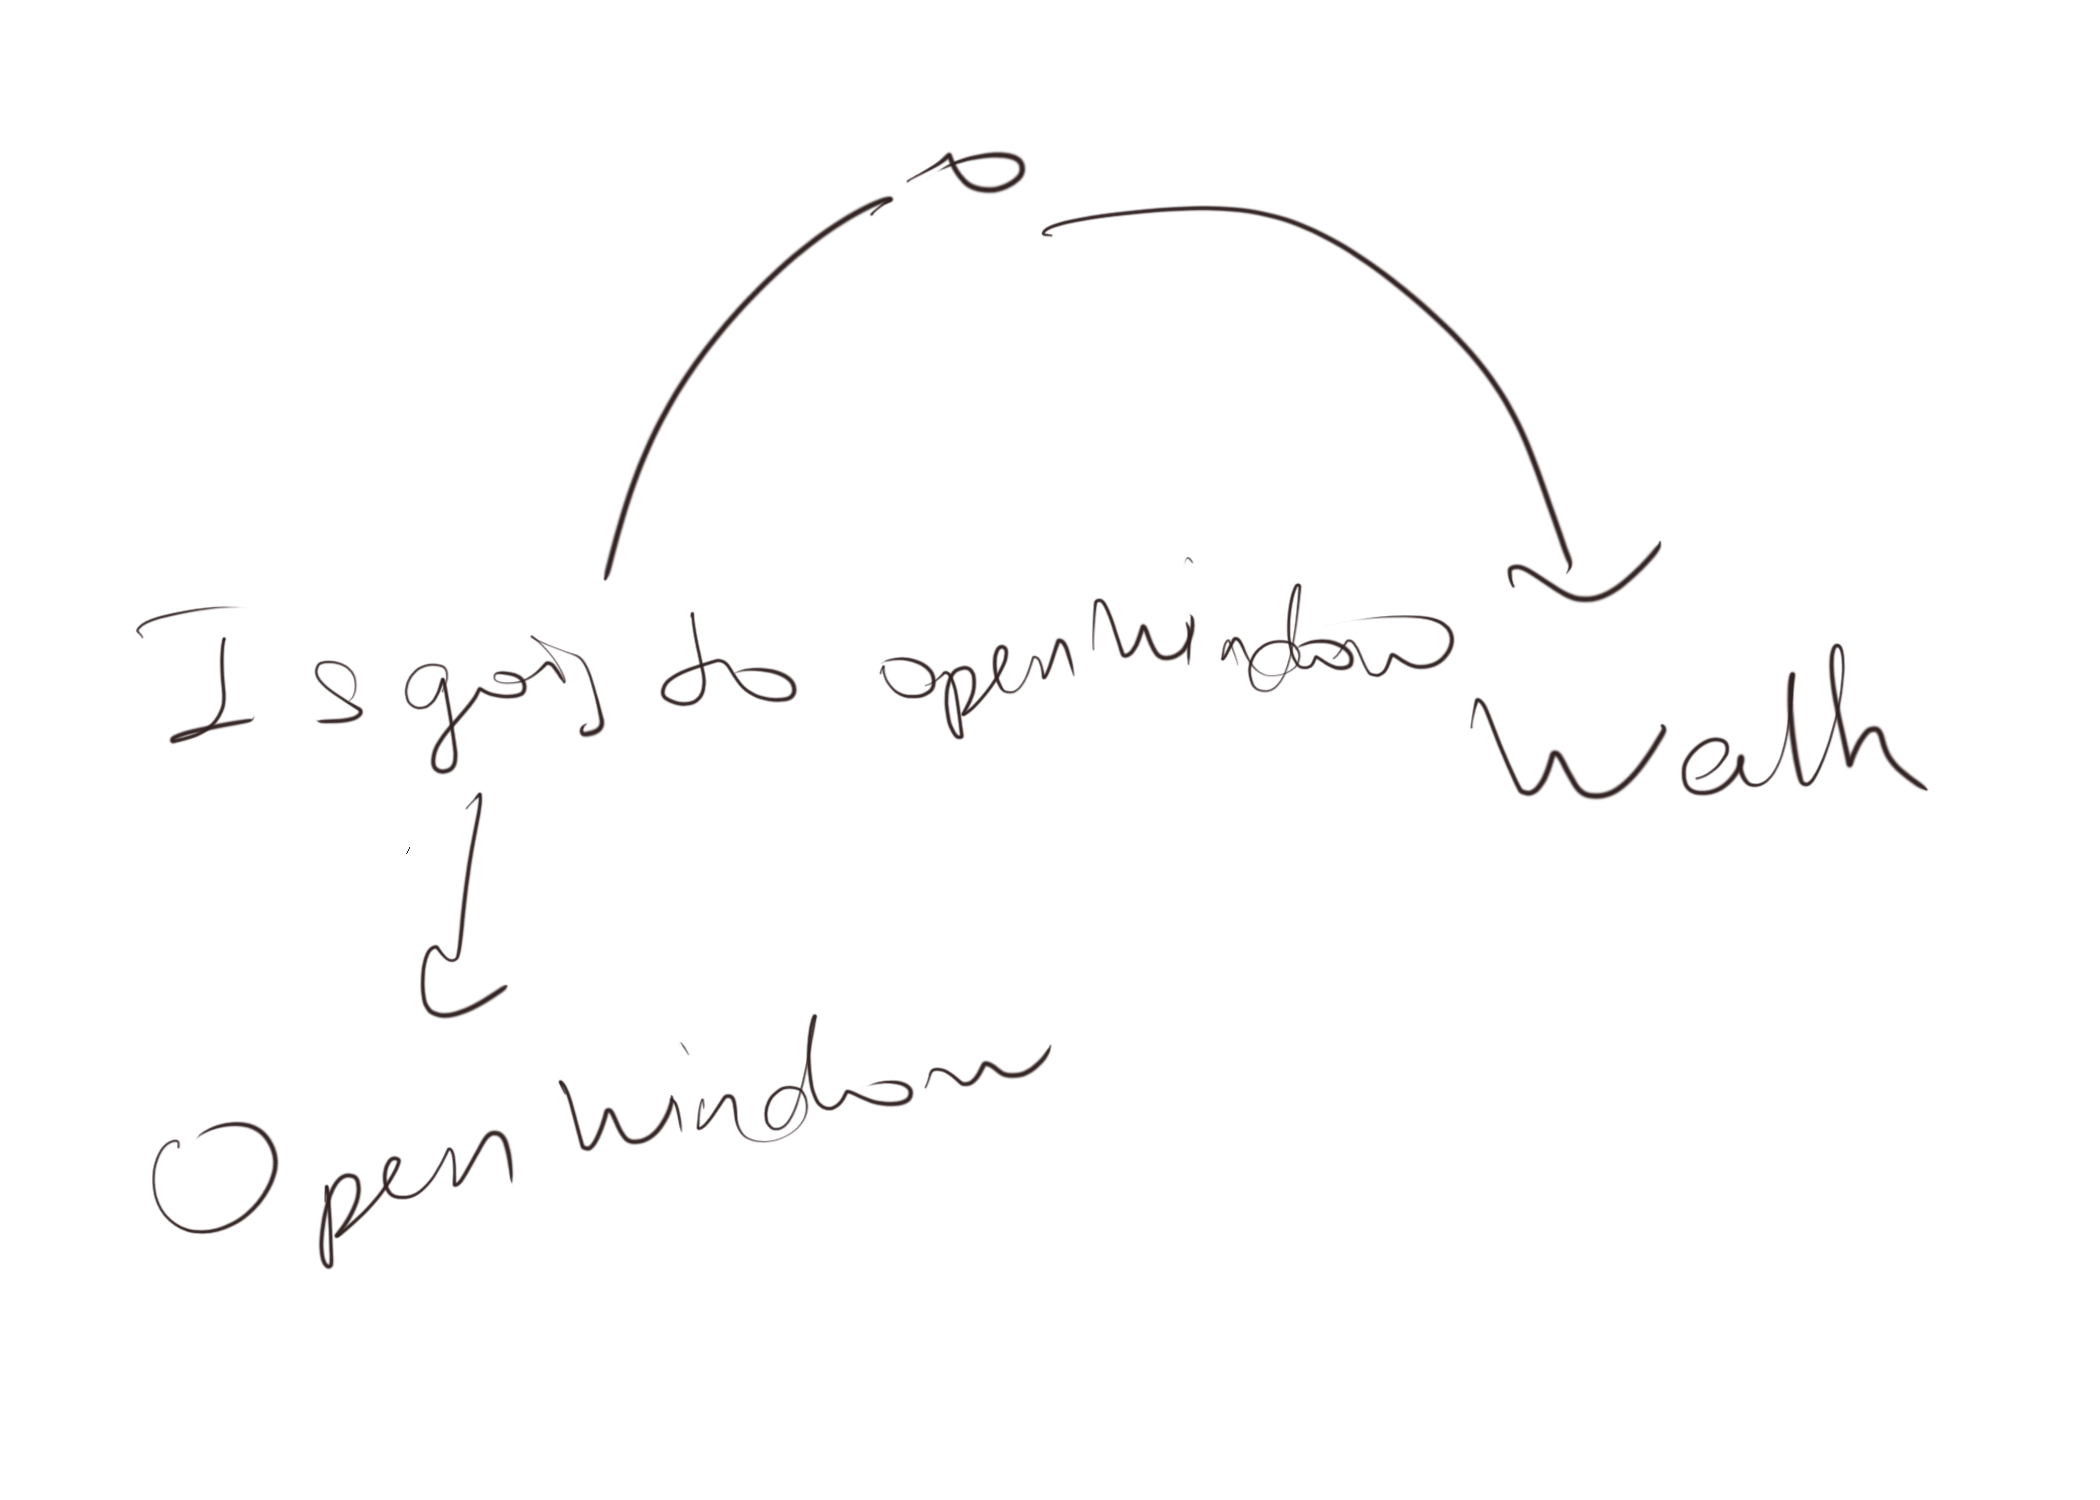 Is going to open window
Walk
Open window